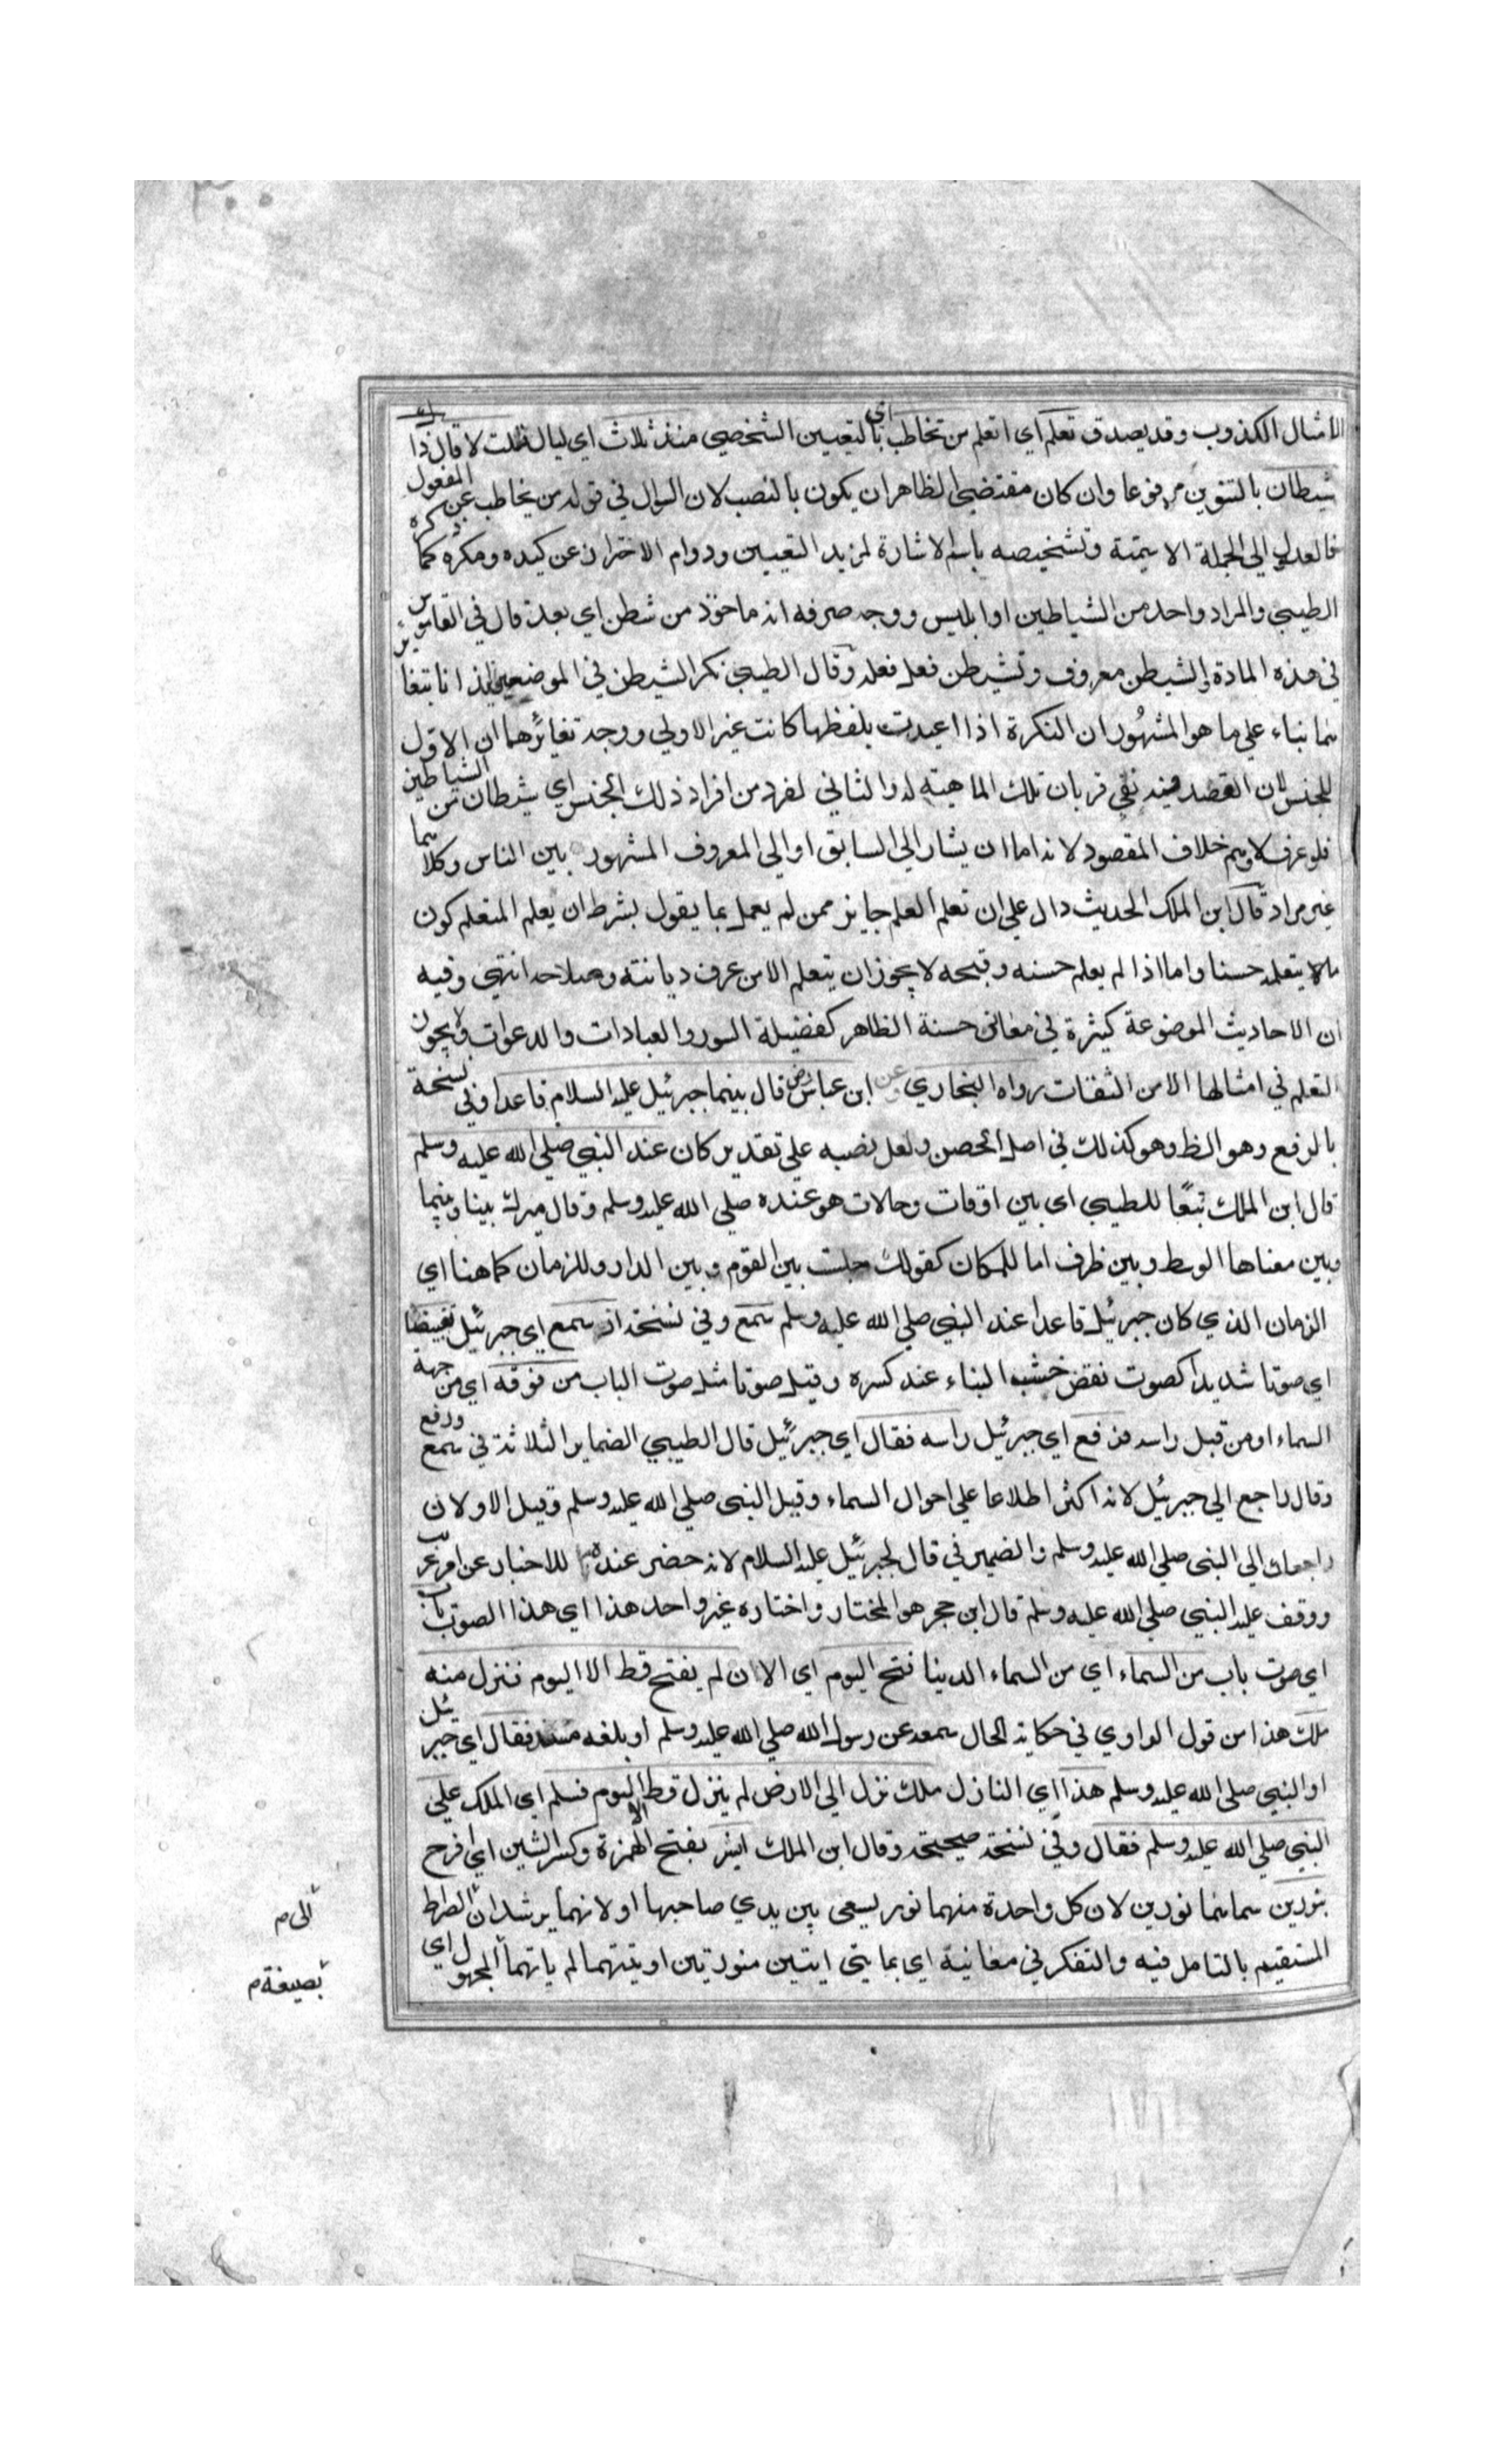 الامثال الكذوب وقد يصدق تعلم اي اتعلم من تخاطب اي بالتعيين الشخصي منذ ثلاث اي ليال قلت لا قال ذاك
شيطان بالتنوين مرفوعا وان كان مقتضي الظاهر ان يكون بالنصب لان السوال في قوله من يخاطب عن المفعول
فالعدول الي الجملة الاسمية وتشخيصه باسم الاشارة لمزيد التعيين ودوام الاحتراز عن كيده ومكره كما ذكره
الطيبي والمراد واحد من الشياطين او ابليس ووجه صرفه انه ماخوذ من شطن اي بعد قال في القاموس
في هذه المادة والشيطن معروف وتشيطن فعل فعله وقال الطيبي نكر الشيطن في الموضعين ايذانا بتغاير
هما بناء علي ما هو المشهور ان النكرة اذا اعيدت بلفظها كانت غير الاولي ووجه تغائرهما ان الاول
للجنس لان القصد فيه نفي قربان تلك الماهية له والثاني لفرد من افراد ذلك الجنس اي شيطان من الشياطين
فلو عرف لاوهم خلاف المقصود لانه اما ان يشار الي السابق او الي المعروف المشهور بين الناس وكلاهما
غير مراد قال ابن الملك الحديث دال علي ان تعلم العلم جايز ممن لم يعمل بما يقول بشرط ان يعلم المتعلم كون
ما يتعلمه حسنا واما اذا لم يعلم حسنه وقبحه لا يجوز ان يتعلم الا من عرف ديانته وصلاحه انتهي وفيه
ان الاحاديث الموضوعة كثيرة في معاني حسنة الظاهر كفضيلة السور والعبادات والدعوات ولا يجوز
التعلم في امثالها الا من الثقات رواه البخاري وعن ابن عباس رض قال بينما جبرئيل عليه السلام قاعدا وفي نسخة
بالرفع وهو الظ وهو كذلك في اصل الحصن ولعل نصبه علي تقدير كان عند النبي صلي الله عليه وسلم
قال ابن الملك تبعًا للطيبي اي بين اوقات وحالات هو عنده صلي الله عليه وسلم وقال ميرك بينا وبينما
وبين معناها الوسط وبين ظرف اما للمكان كقولك جلست بين القوم وبين الدار وللزمان كما هنا اي
الزمان الذي كان جبرئيل قاعدا عند النبي صلي الله عليه وسلم سمع وفي نسخة اذ سمع اي جبرئيل نقيضا
اي صوتا شديدا كصوت نقض خشب البناء عند كسره وقيل صوتا مثل صوت الباب من فوقه اي من جهة
السماء او من قبل راسه فرفع اي جبرئيل راسه فقال اي جبرئيل قال الطيبي الضماير الثلاثة في سمع ورفع
وقال راجع الي جبرئيل لانه اكثر اطلاعا علي احوال السماء وقيل النبي صلي الله عليه وسلم وقيل الاولان
راجعان الي النبي صلي الله عليه وسلم والضمير في قال لجبرئيل عليه السلام لانه حضر عنده للاخبار عن امر غريب
ووقف عليه النبي صلي الله عليه وسلم قال ابن حجر هو المختار واختاره غير واحد هذا اي هذا الصوت باب
اي صوت باب من السماء اي من السماء الدينا فتح اليوم اي الان لم يفتح قط الا اليوم فنزل منه
ملك هذا من قول الراوي في حكاية الحال سمعه عن رسول الله صلي الله عليه وسلم او بلغه منه فقال اي جبرئيل
او النبي صلي الله عليه وسلم هذا اي النازل ملك نزل الي الارض لم ينزل قط الا اليوم فسلم اي الملك علي
النبي صلي الله عليه وسلم فقال وفي نسخة صحيحة وقال ابن الملك ابشر بفتح الهمزة وكسر الشين اي افرح
بنورين سماهما نورين لان كل واحدة منهما نور يسعي بين يدي صاحبها او لانهما يرشدان الصراط
المستقيم بالتامل فيه والتفكر في معانية اي بما يتي ايتين منورتين اوتيتهما لم ياتهما المجهول اي
الى م
بصيغة م